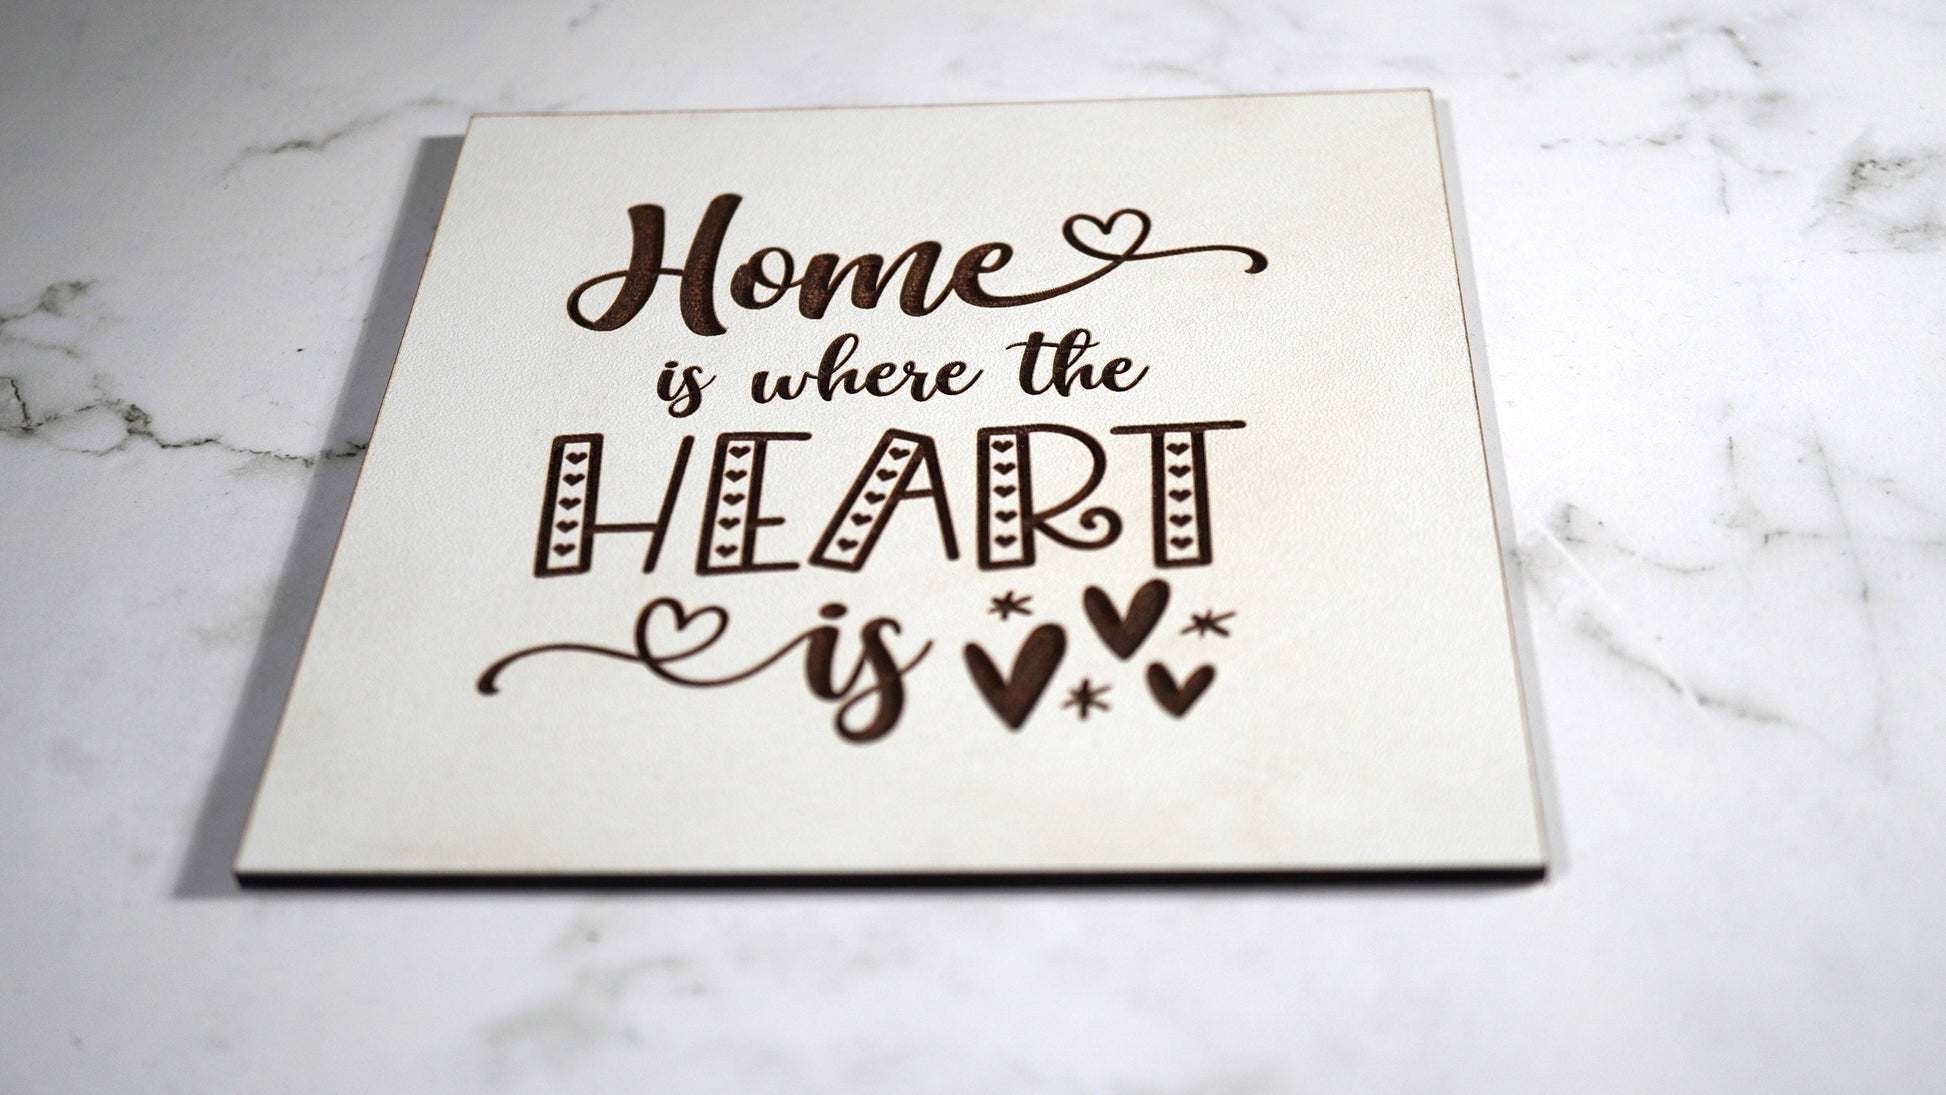 Home
is where the
HEART
is